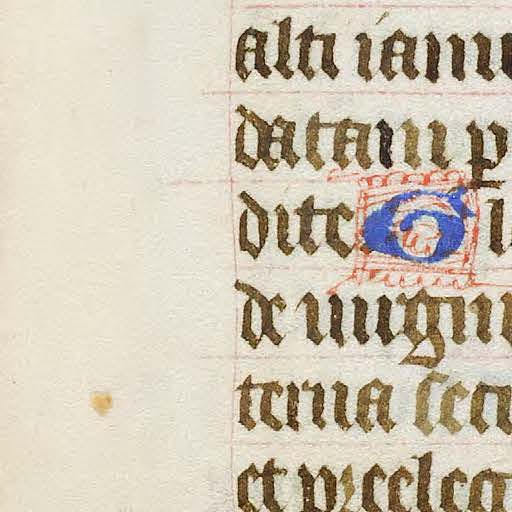 alti ianu
datam p
dite G l
de uirgin
terna sec
et preeleg